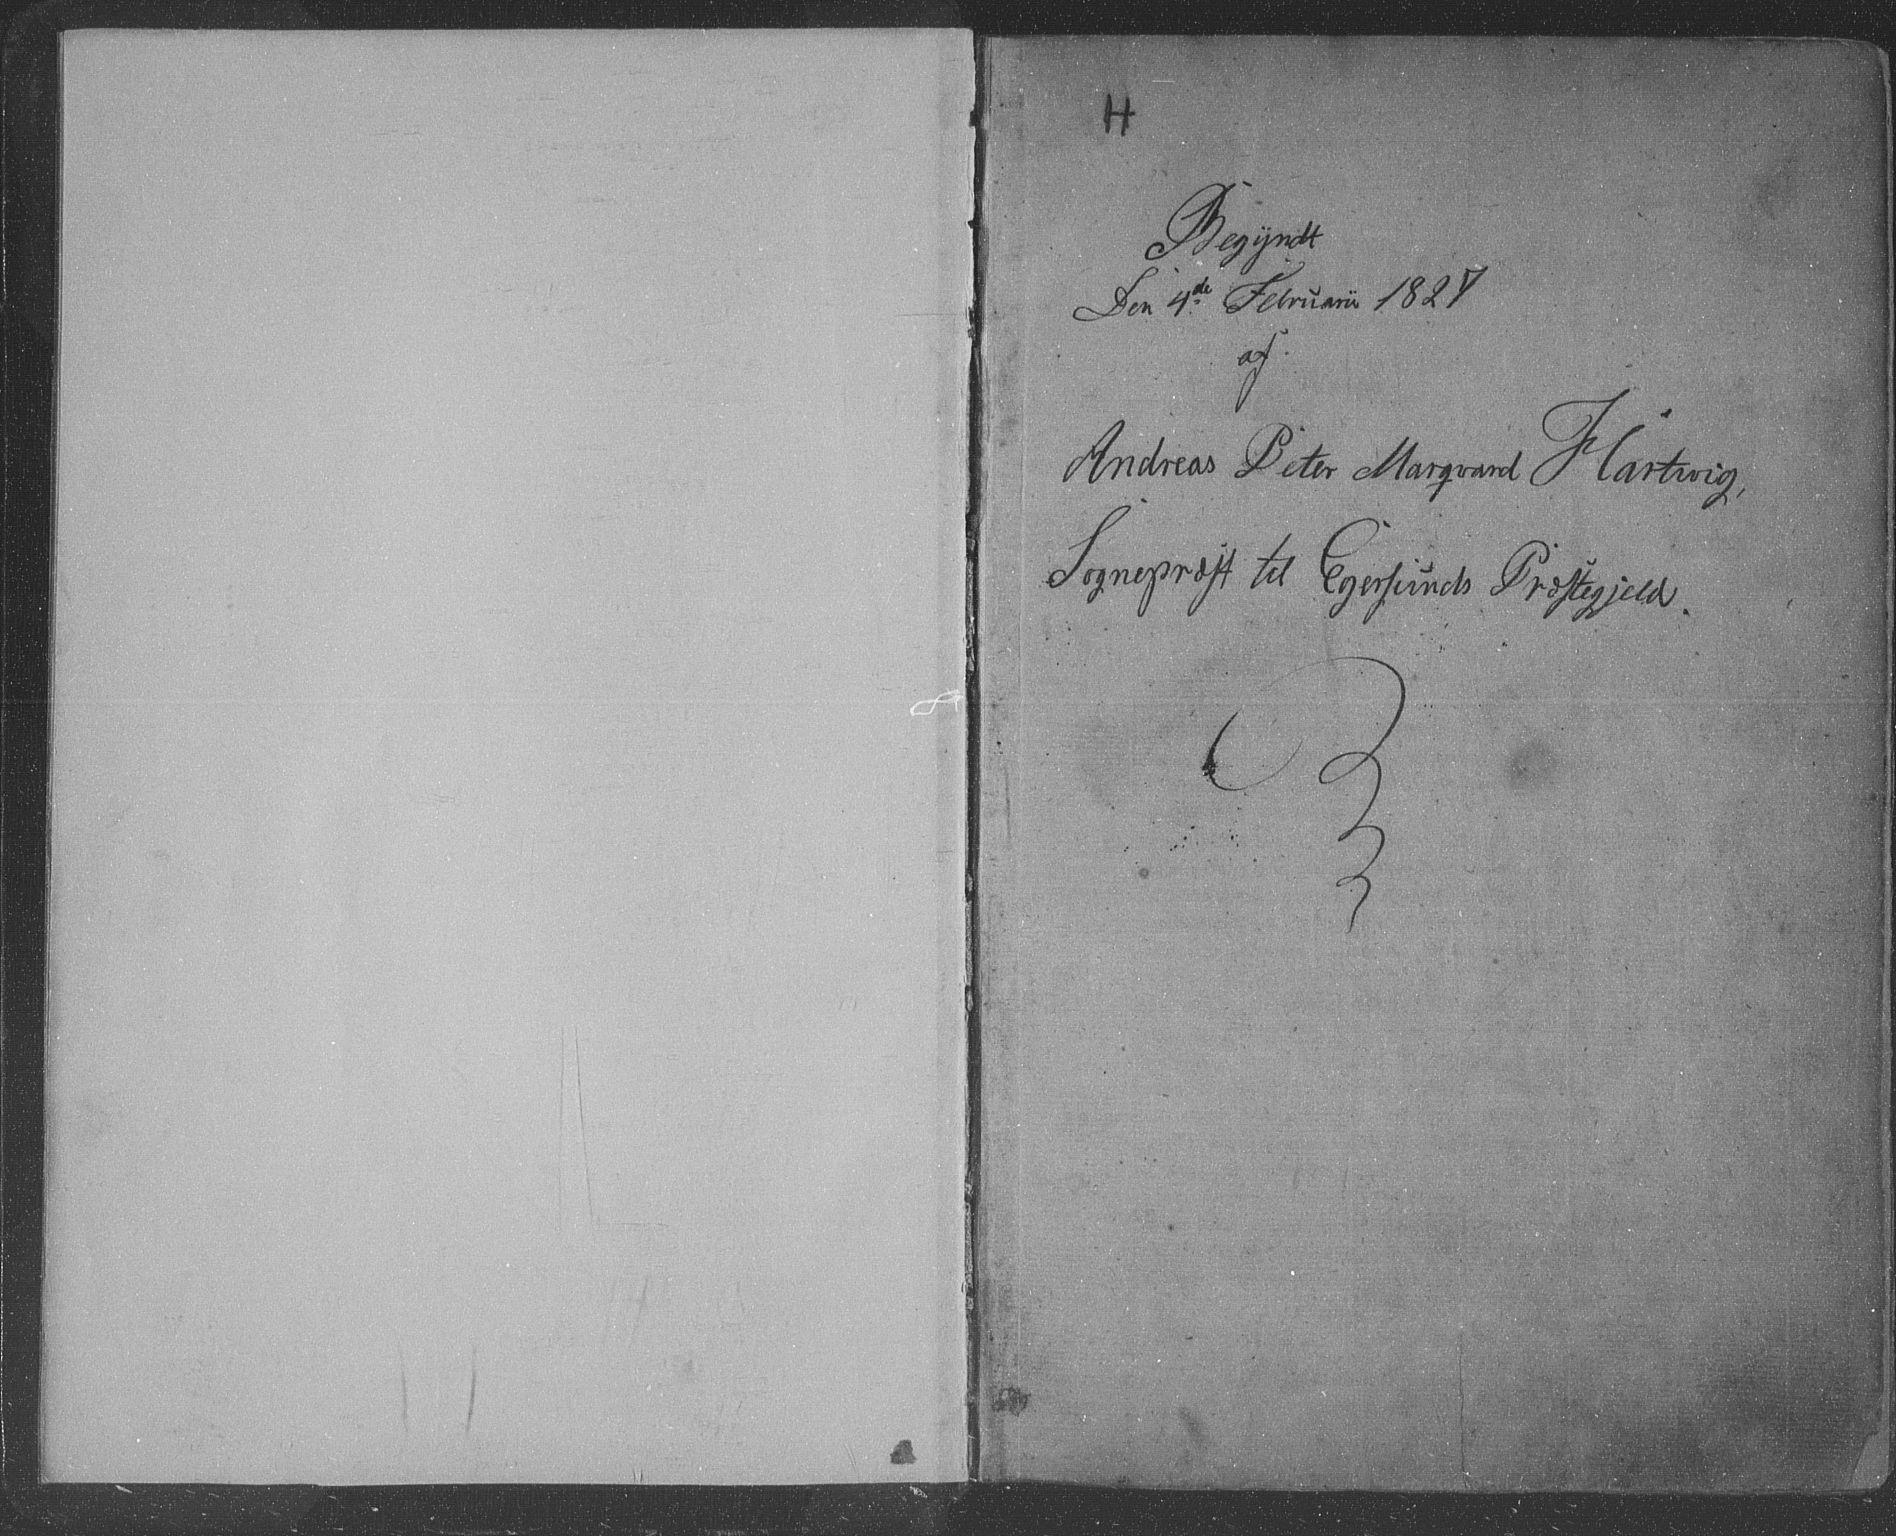 H
Begÿndt
Den 4de Februarii 1827
af
Andreas Peter Marqvard Hartwig,
Sognepræst til Egersunds Præstegjeld.